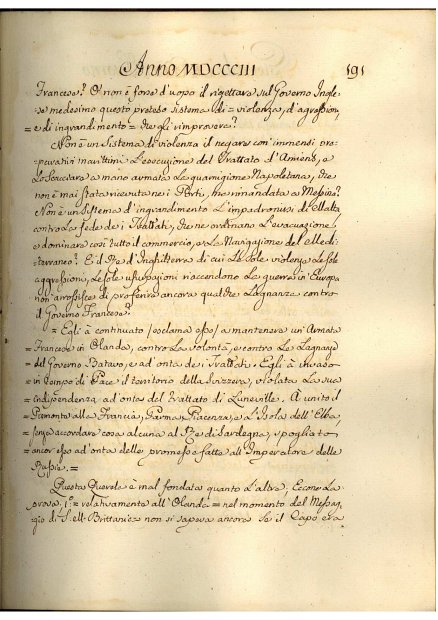 Anno MDCCCIII 191
Francese? O non è forse d'uopo il rigettare sul Governo Ingle-
se medesimo questo preteso sistema di = violenza, d'agressioni,
= e di ingrandimento = che gli rimprovera?
Non è un sistema di violenza il negare con immensi pre-
parativi marittimi l'esecuzione del Trattato d'Amiens, e
lo scacciare a mano armata la guarnigione Napoletana, che
non è mai stata ricevuta nei Forti, ma rimandata a Messina?
Non è un sistema d'ingrandimento l'impadronirsi di Malta
contro la fede dei Trattati, che ne ordinano l'evacuazione,
e dominare così tutto il commercio, e la Navigazione del Medi-
terraneo? E il Re d'Inghilterra di cui le sole violenze, le sole
aggressioni, le sole usurpazioni riaccendono la guerra in Europa
non arrossisce di proferire ancora qualche lagnanza contro
il Governo Francese?
= Egli à continuato /esclama esso/ a mantenere un Armata
= Francese in Olanda, contro la volontà, e contro le lagnanze
= del Governo Batavo, e ad onta dei Trattati = Egli à invaso
= in tempo di Pace il territorio della Svizzera, violata la sua
= indipendenza ad onta del Trattato di Luneville. À unito il
= Piemonte alla Francia, Parma, Piacenza, e l'Isola dell'Elba,
= senza accordare cosa alcuna al Re di Sardegna, spogliato
= ancor esso ad onta delle promesse fatte all'Imperatore delle
= Russie. =
Questa Querela è mal fondata quanto l'altra, Eccone la
prova, 1.° = relativamente all'Olanda = nel momento del Messag-
gio di S. M. Brittanic.ª = non si sapeva ancora se il Capo era